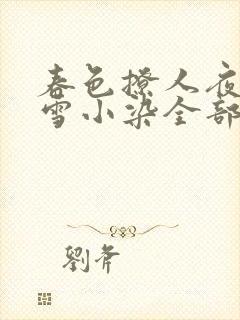 春色撩人夜
雪小染全部
劉斧